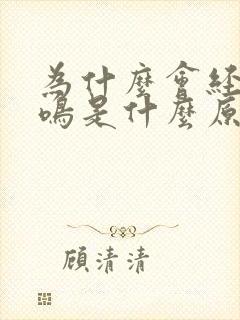 為什麼會經
鳴是什麼原
顧清清